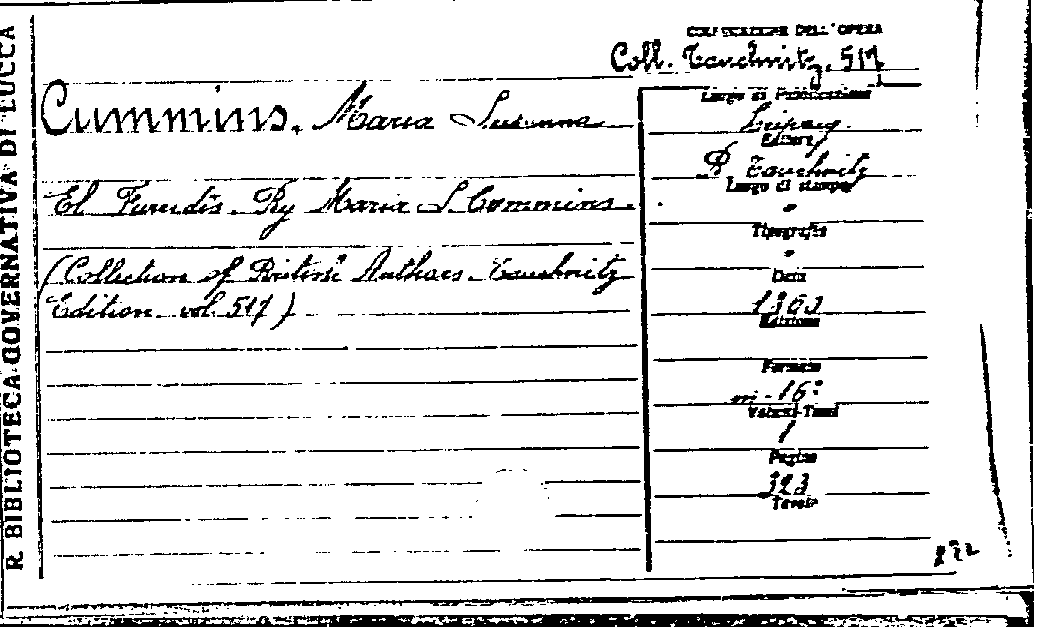 R. BIBLIOTECA GOVERNATIVA DI LUCCA
COLLOCAZIONE DELL'OPERA
Coll. Tauchnitz, 517
Cummins, Maria Susanna
El Fureidîs. By Maria S. Cummins.
(Collection of British Authors. Tauchnitz
Edition. vol. 517)
Luogo di Pubblicazione
Leipzig
Editore
B. Tauchnitz
Luogo di stampa
"
Tipografia
"
Data
Edizione
Formato
in-16°
Volumi-Tomi
1
Pagine
323
Tavole